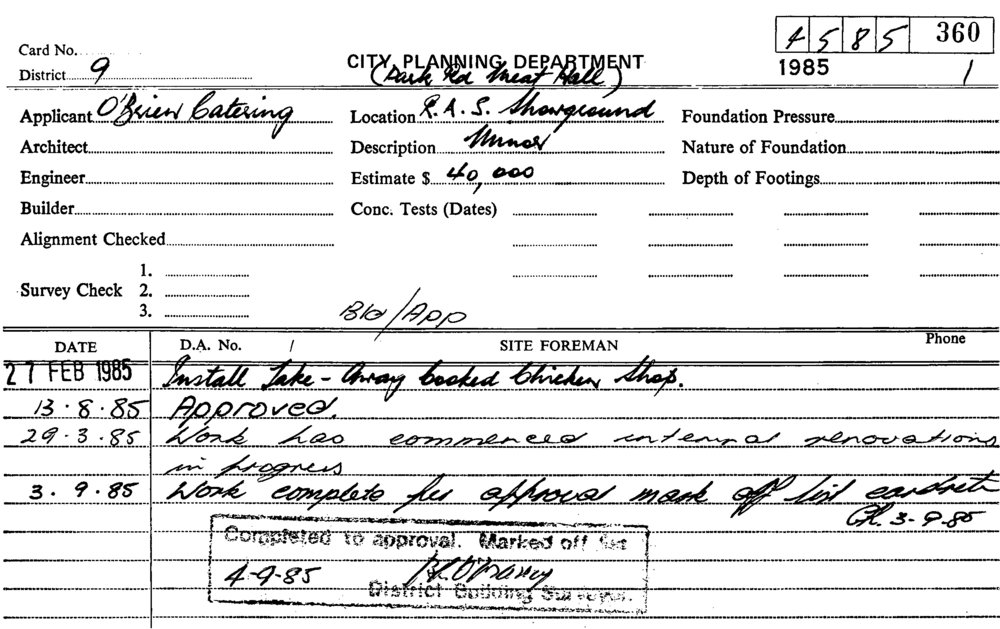 4 5 8 5 360
Card No.
CITY PLANNING DEPARTMENT
1985 1
District 9
(Park Rd Meat Hall)
Applicant O'Brien Catering Location R.A.S. Showground Foundation Pressure
Architect Description Minor Nature of Foundation
Engineer Estimate $ 40,000 Depth of Footings
Builder Conc. Tests (Dates)
Alignment Checked
1.
Survey Check 2.
3.
Bld/App
DATE D.A. No. / SITE FOREMAN Phone
27 FEB 1985 Install Take-Away Cooked Chicken Shop.
13.8.85 Approved.
29.3.85 Work has commenced internal renovations
in progress
3.9.85 Work complete for approval mark off list
3-9-85
Completed to approval. Marked off list
4-9-85
District Building Surveyor.